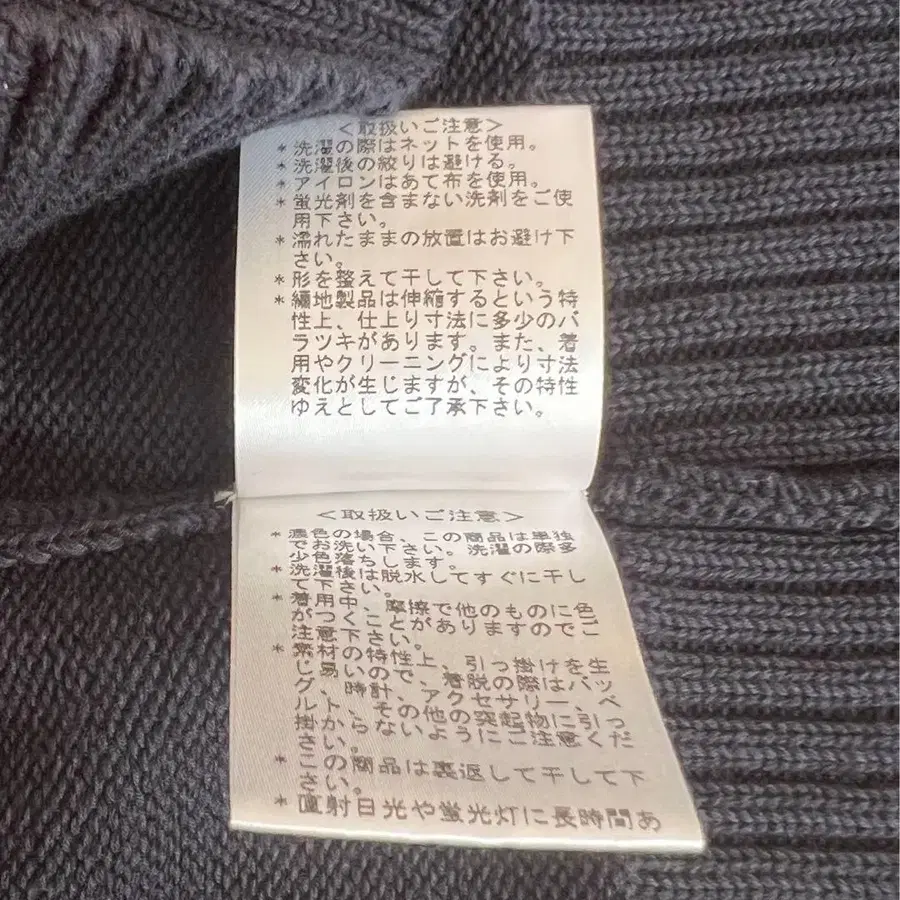 <取扱いご注意>
* 洗濯の際はネットを使用。
* 洗濯後の絞りは避ける。
* アイロンはあて布を使用。
* 蛍光剤を含まない洗剤をご使
用下さい。
* 濡れたままの放置はお避け下
さい。
* 形を整えて干して下さい。
* 編地製品は伸縮するという特
性上、仕上り寸法に多少のバ
ラツキがあります。また、着
用やクリーニングにより寸法
変化が生じますが、その特性
ゆえとしてご了承下さい。
<取扱いご注意>
* 濃色の場合、この商品は単独
でお洗い下さい。洗濯の際多
少色落ちします。
* 洗濯後は脱水してすぐに干し
て下さい。
* 着用中、摩擦で他のものに色
がつくことがありますのでご
注意下さい。
* 素材の特性上、引っ掛けを生
じ易いので、着脱の際はバッ
グ、時計、アクセサリー、ベ
ルト、その他の突起物に引っ
掛からないようにご注意くだ
さい。
* この商品は裏返して干して下
さい。
* 直射日光や蛍光灯に長時間あ